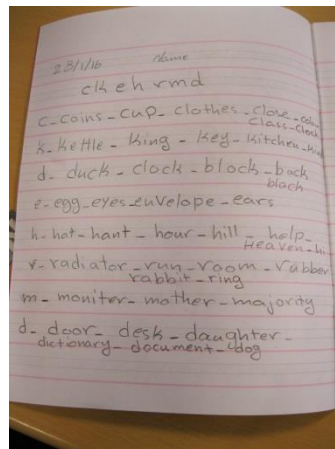 23/1/16 Name
ck e h r m d
c-coins-cup-clothes-close-
class-clock
k-kettle-king-key-kitchen-
d-duck-clock-block-back
black
e-egg-eyes-envelope-ears
h-hat-hant-hour-hill-help-
Heaven-hi
r-radiator-run-room-rubber
rabbit-ring
m-moniter-mother-majority
d-door-desk-daughter-
dictionary-document-dog